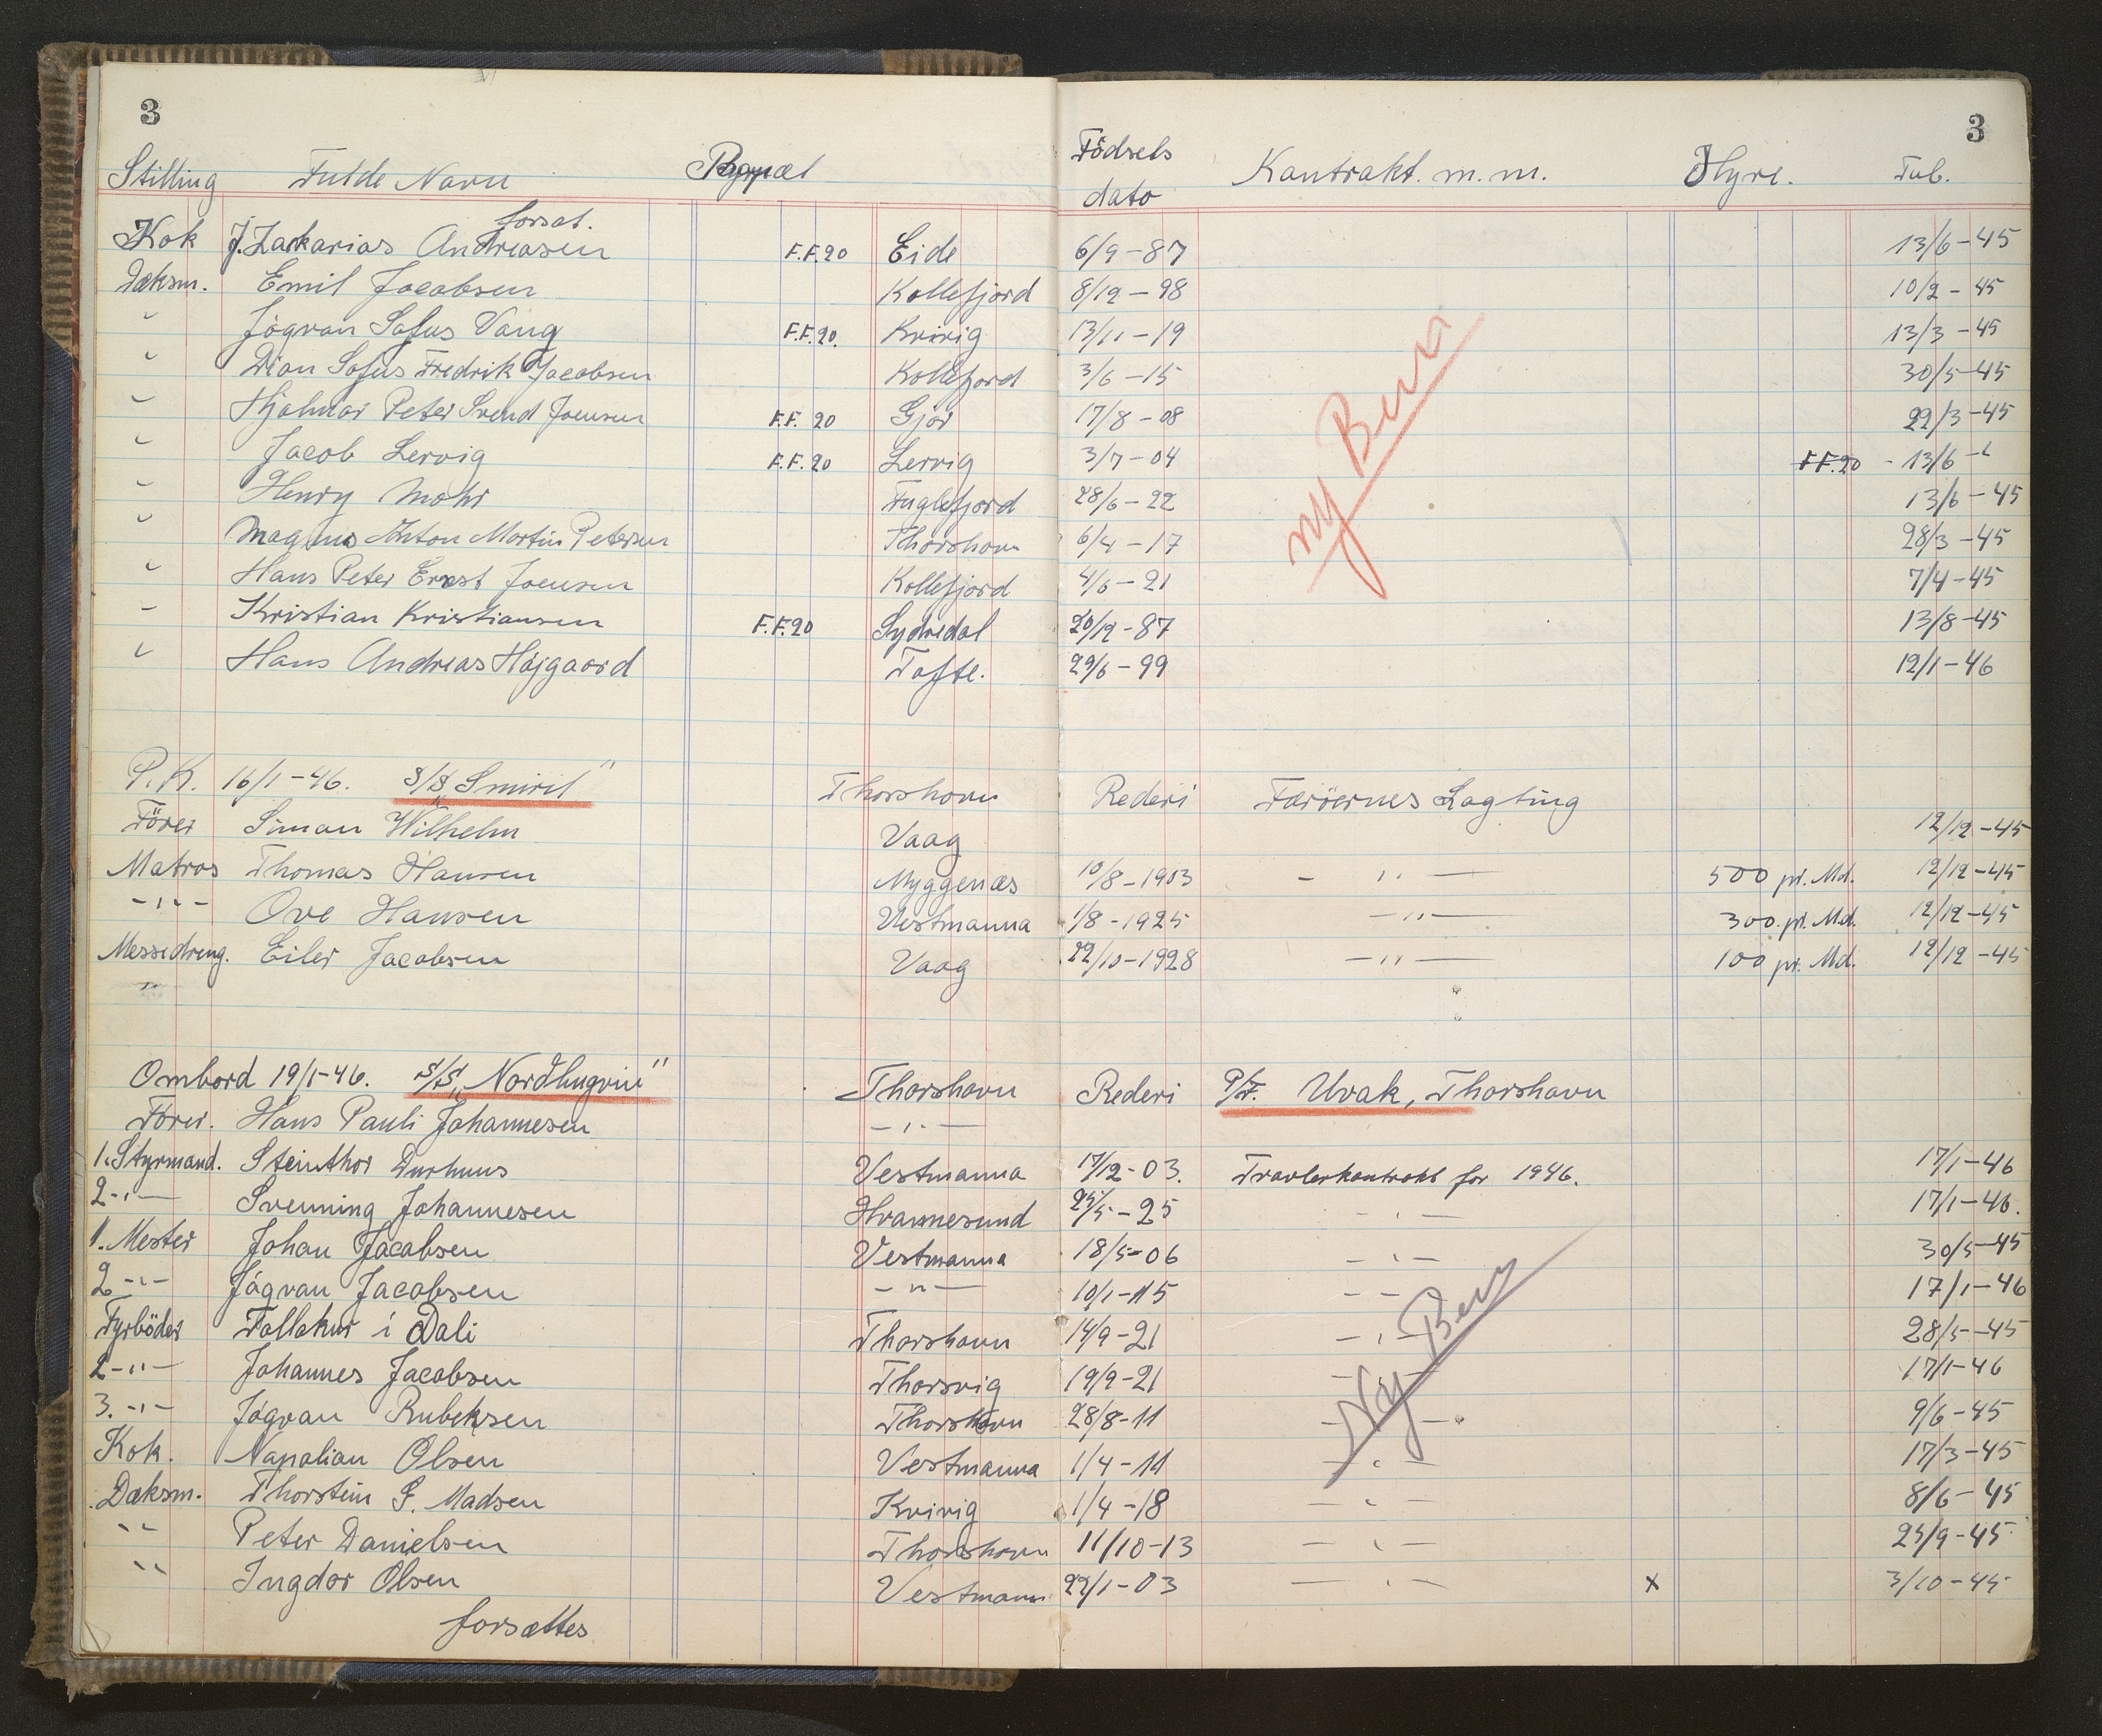 3 3
Stilling Fulde Navn Födsels dato Kontrakt. m.m. Hyre. Tub.
forsat.
Kok J. Zackarias Andreasen F.F. 20 Eide 6/9-87 13/6-45
Dæksm. Emil Jacobsen Kollefjord 8/12-98 10/2-45
" Jógvan Sofus Vang F.F. 20. Kvivig 13/11-19 13/3-45
" Dion Sofus Fredrik Jacobsen Kollefjord 3/6-15 30/5-45
" Hjalmar Peter Svend Joensen F.F. 20 Gjov 17/8-08 22/3-45
" Jacob Lervig F.F. 20 Lervig 3/7-04 F.F. 20 - 13/6-"
" Henry Mohr Fuglefjord 28/6-22 13/6-45
" Magnus Anton Martin Petersen Thorshavn 6/4-17 28/3-45
" Hans Peter Ernst Joensen Kollefjord 4/6-21 7/4-45
" Kristian Kristiansen F.F. 20 Sydredal 20/12-87 13/8-45
" Hans Andreas Højgaard Tofte. 29/6-99 12/1-46
ny Bem
P.K. 16/1-46. S/S „Smiril" Thorshavn Rederi Færöernes Lagting
Förer Simon Wilhelm Vaag 12/12-45
Matros Thomas Hansen Myggenæs 10/8-1903 - " - 500 pr. Md. 12/12-45
- " - Ove Hansen Vestmanna 1/8-1925 - " - 300 pr. Md. 12/12-45
Messedreng. Eiler Jacobsen Vaag 22/10-1928 - " - 100 pr. Md. 12/12-45
"
Ombord 19/1-46. S/S „Nordhugvin" Thorshavn Rederi P/F. Uvak, Thorshavn
Förer. Hans Pauli Johannesen - " -
1. Styrmand. Steinthor Durhuus Vestmanna 17/12-03. Travlerkontrakt for 1946. 17/1-46
2 - " - Svenning Johannesen Hvannesund 25/5-25 - " - 17/1-46.
1. Mester Johan Jacobsen Vestmanna 18/5-06 - " - 30/5-45
2 - " - Jógvan Jacobsen - " - 10/1-15 - - 17/1-46
Fyrböder Tollakur i Dali Thorshavn 14/9-21 - " - 28/5-45
2 - " - Johannes Jacobsen Thorsvig 19/9-21 - - 17/1-46
3. - " - Jógvan Rubeksen Thorshavn 28/8-11 - - 9/6-45
Kok. Napolian Olsen Vestmanna 1/4-11 - " - 17/3-45
Dæksm. Thorstein S. Madsen Kvivig 1/4-18 - " - 8/6-45
" Peter Danielsen Thorshavn 11/10-13 - " - 25/9-45
" Ingdor Olsen Vestmann 22/1-03 - " - x 3/10-45
Ny Bem
forsættes